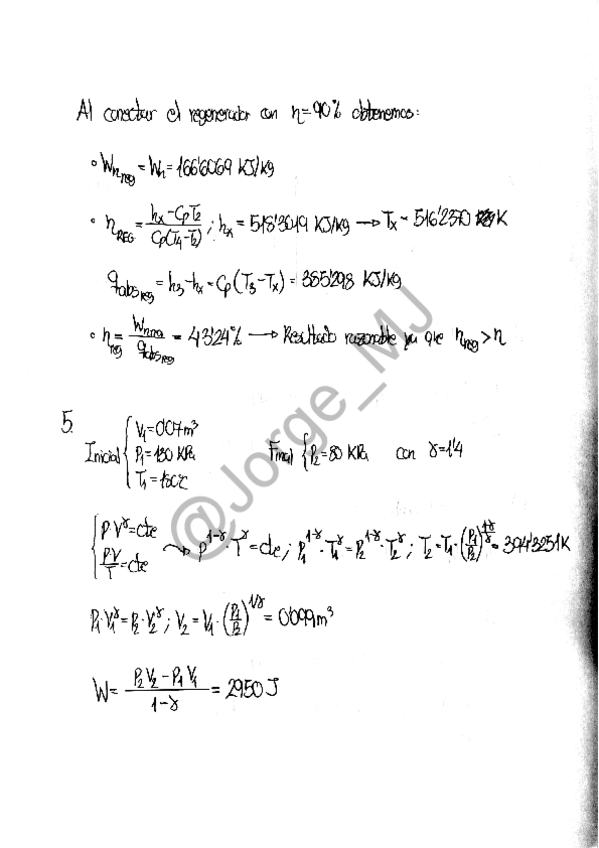 Al conectar el regenerador con η=90% obtenemos:
• Wn_reg = Wn = 166'6069 KJ/kg
• η_REG = (hx - CpT2)/(Cp(T4-T2)) ; hx = 518'3019 KJ/kg → Tx = 516'2370 K
qabs_reg = h3 - hx = Cp(T3-Tx) = 385'298 KJ/kg
• η_reg = Wn_reg/qabs_reg = 43'24% → Resultado razonable ya que η_reg > η
5.
Inicial { V1=0'07m³ P1=130 KPa T1=180ºC Final { P2=80 KPa con γ=1'4
{ P·V^γ=cte PV/T=cte → P^(1-γ)·T^γ=cte ; P1^(1-γ)·T1^γ=P2^(1-γ)·T2^γ ; T2=T1·(P1/P2)^((1-γ)/γ)=394'3251K
P1·V1^γ=P2·V2^γ ; V2=V1·(P1/P2)^(1/γ)=0'099m³
W= (P2V2-P1V1)/(1-γ) = 2950 J
@Jorge_MJ